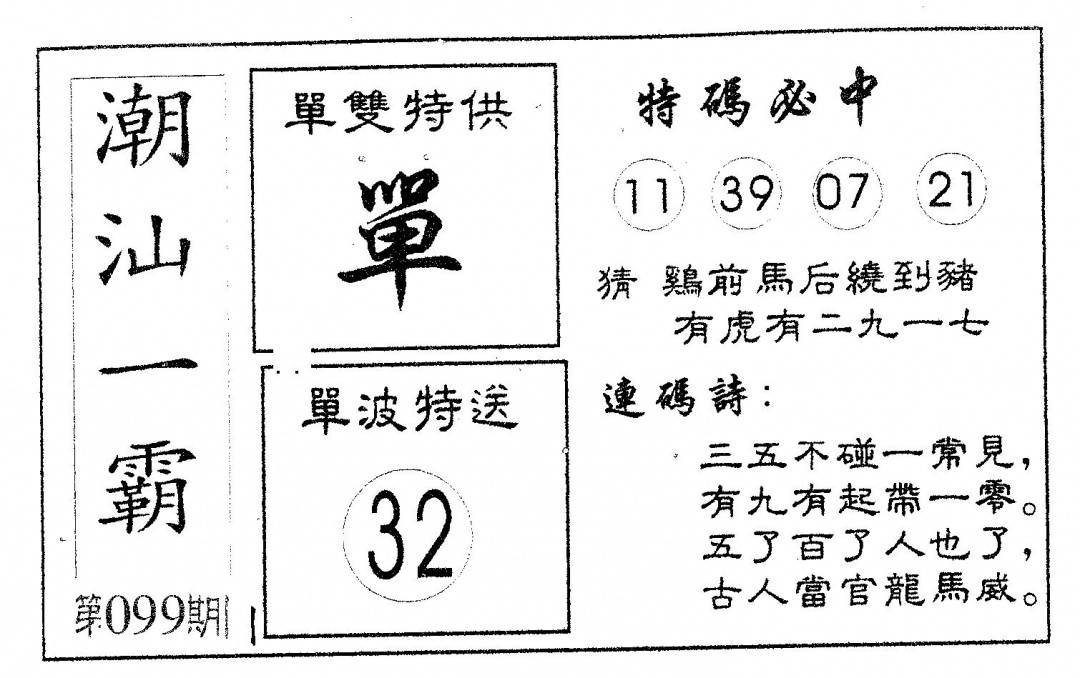 潮汕一霸
第099期
單雙特供
單
單波特送
32
特碼必中
11 39 07 21
猜 鷄前馬后繞到豬
有虎有二九一七
連碼詩：
三五不碰一常見，
有九有起帶一零。
五了百了人也了，
古人當官龍馬威。